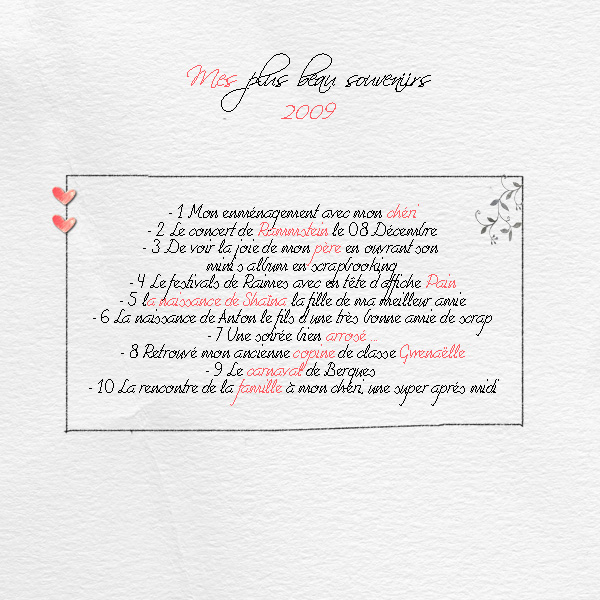 Mes plus beau souvenirs
2009
- 1 Mon enménagement avec mon chéri
- 2 Le concert de Rammstein le 08 Décembre
- 3 De voir la joie de mon père en ouvrant son
mini's album en scrapbooking
- 4 Le festivals de Raimes avec en tête d'affiche Pain
- 5 la naissance de Shaïna la fille de ma meilleur amie
- 6 La naissance de Anton le fils d'une très bonne amie de scrap
- 7 Une soirée bien arrosé ...
- 8 Retrouvé mon ancienne copine de classe Gwenaëlle
- 9 Le carnaval de Bergues
- 10 La rencontre de la famille à mon chéri, une super après midi